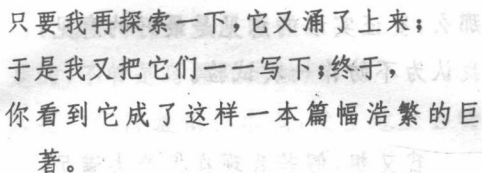 只要我再探索一下,它又涌了上来;
于是我又把它们一一写下;终于,
你看到它成了这样一本篇幅浩繁的巨
著。